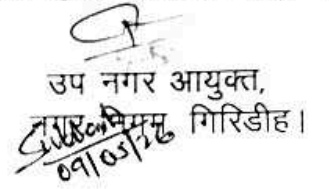 उप नगर आयुक्त,
नगर निगम, गिरिडीह।
09/05/26